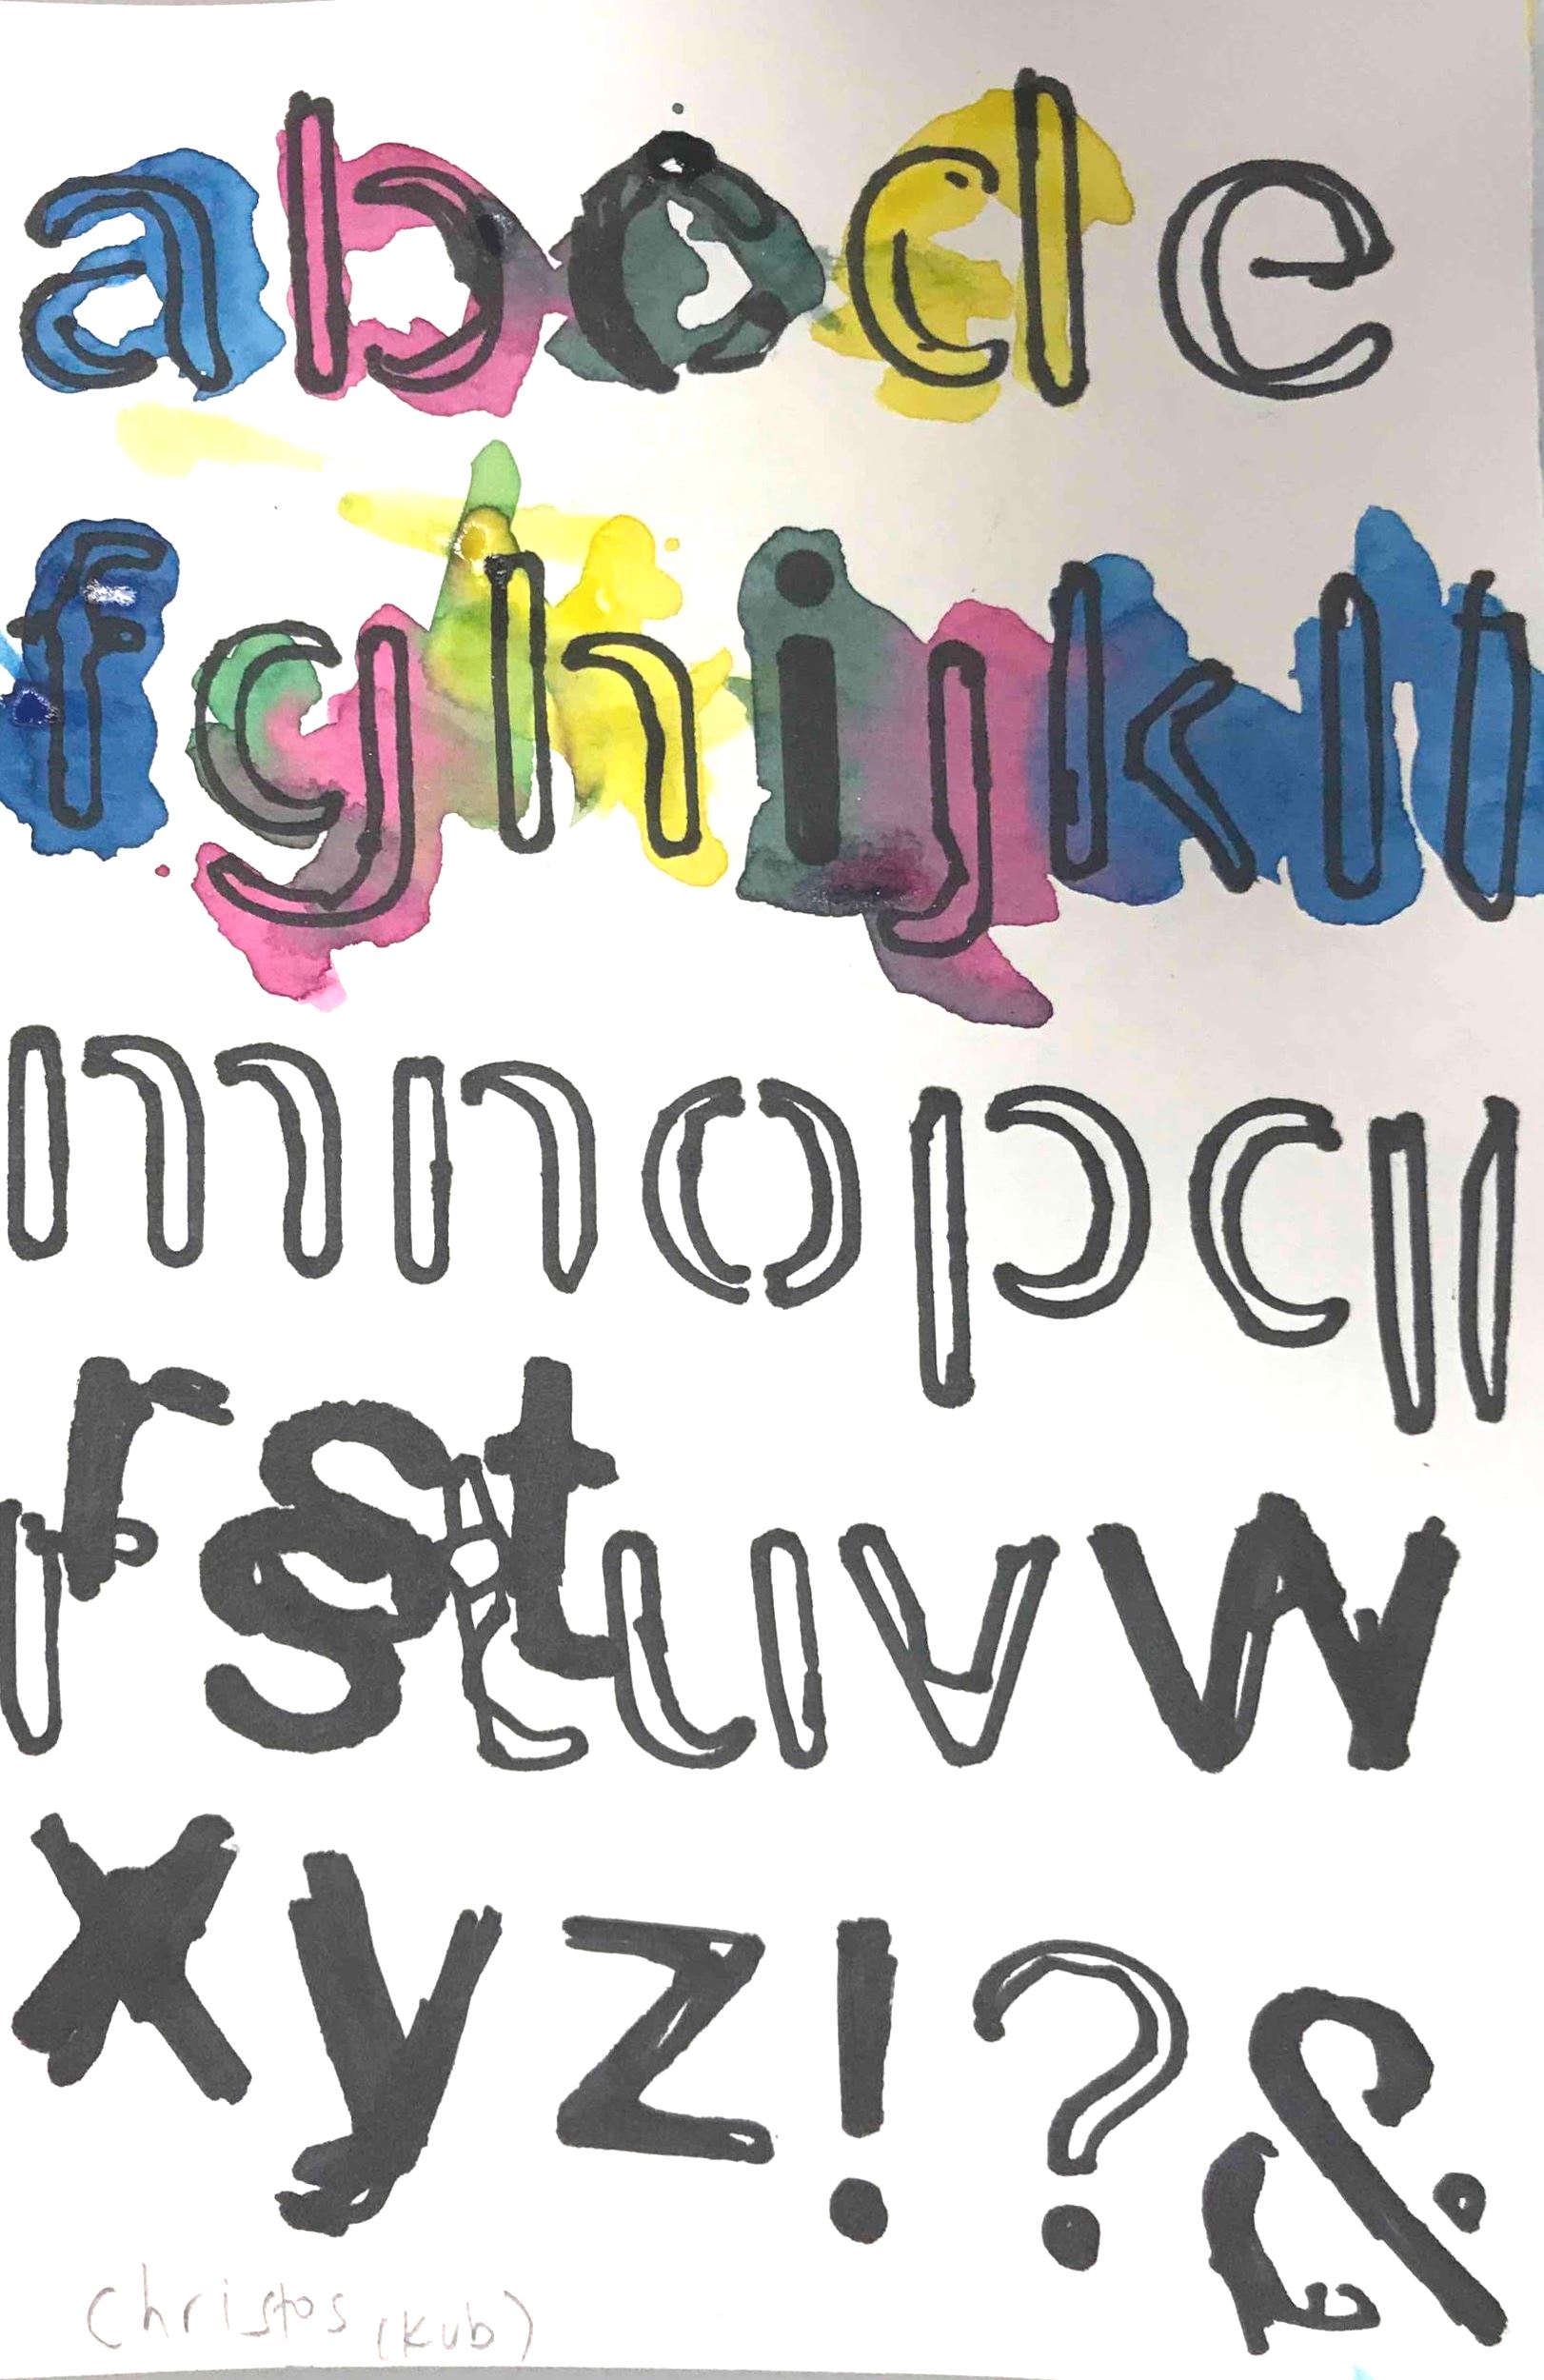 abcde
fghijkl
mnopq
rstuvw
xyz!?&
Christos (kub)